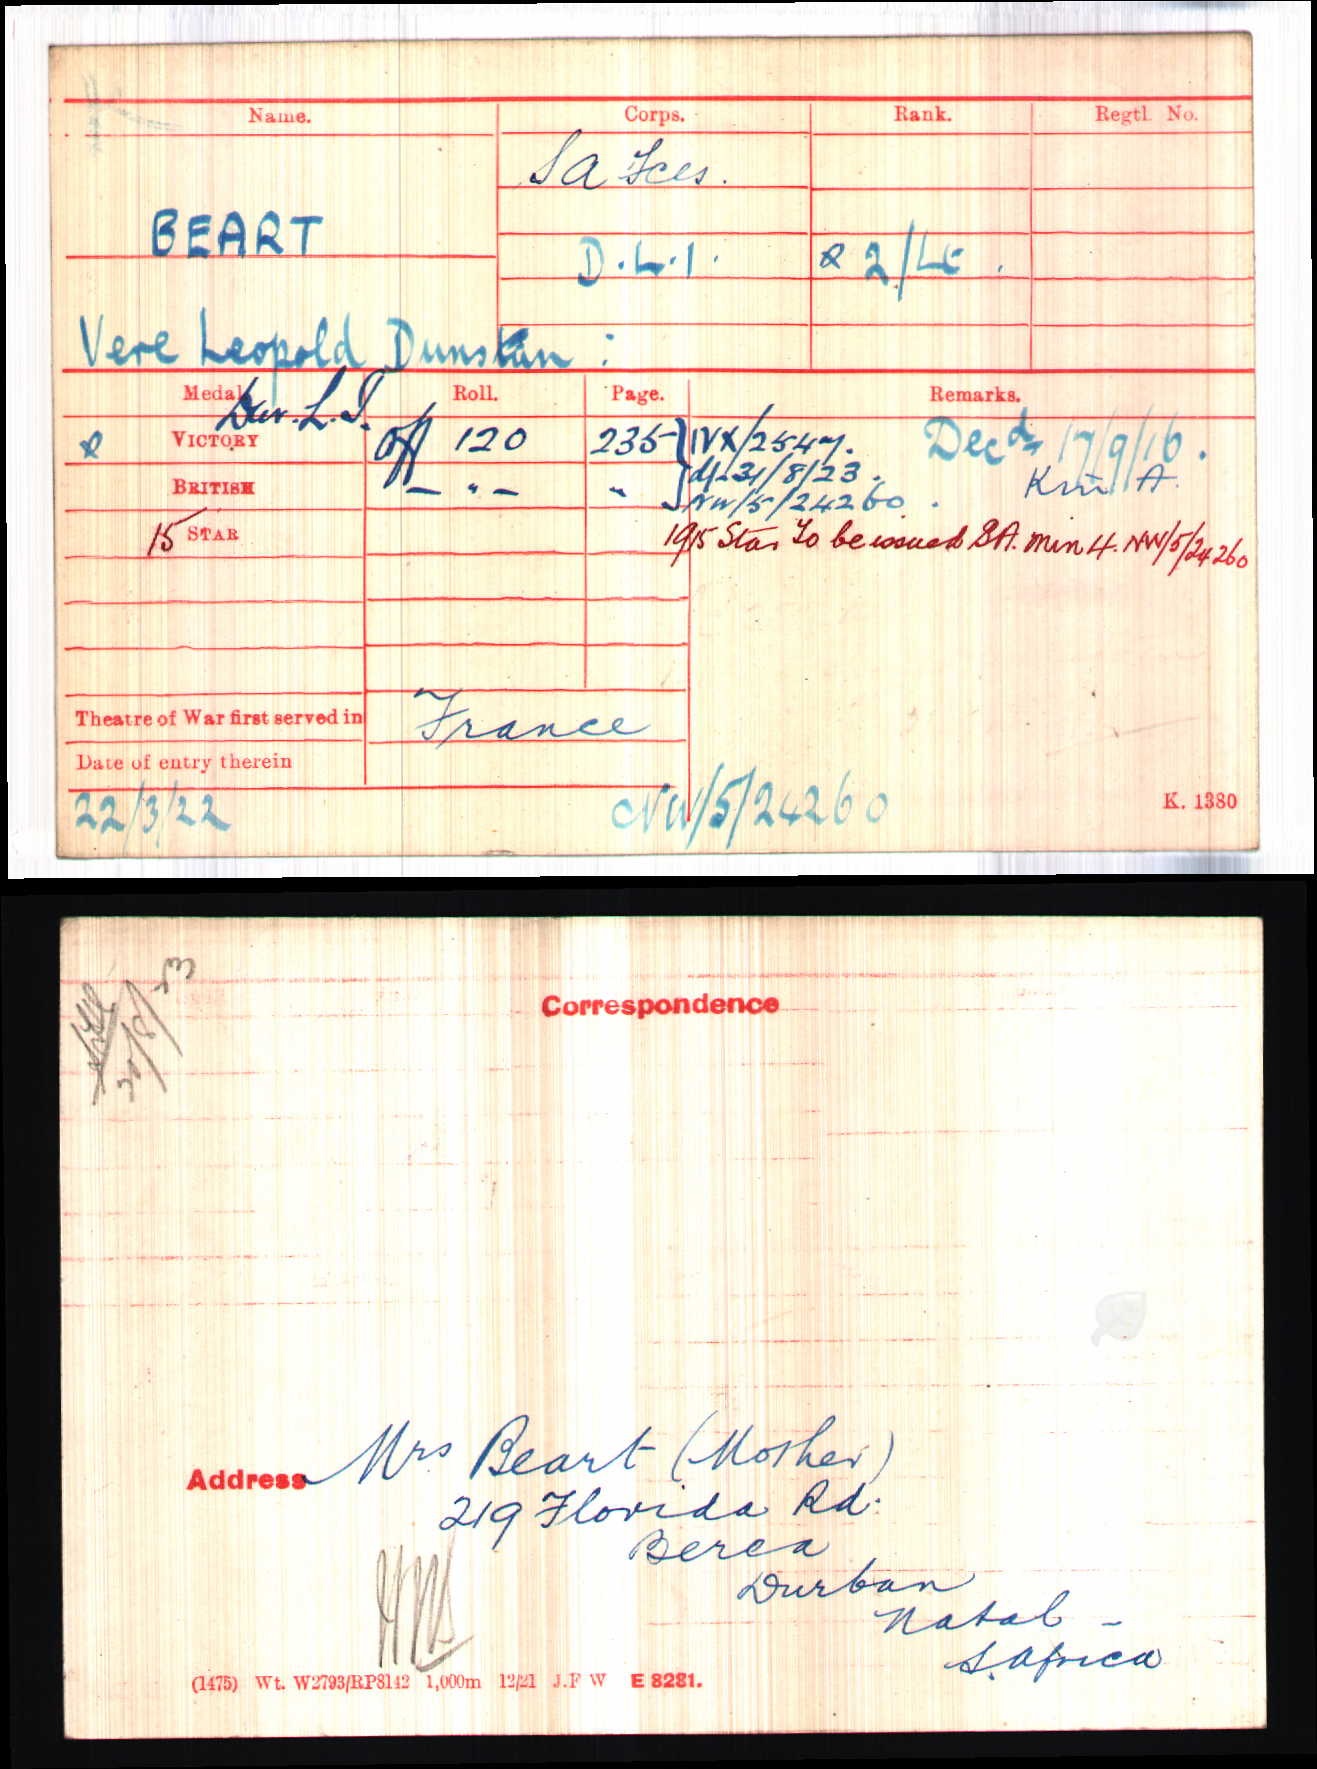 Name. Corps. Rank. Regtl. No.
S A Fces.
BEART
D.L.I. & 2/Lt.
Vere Leopold Dunstan:
Medal Roll. Page. Remarks.
Dur. L. I.
VICTORY Off 120 235 IVX/2547. Decd 17/9/16.
d/- 31/8/23.
BRITISH — " — " NW/5/24260. K in A.
15 STAR 1915 Star To be issued SA. min 4. NW/5/24260
Theatre of War first served in France
Date of entry therein
22/3/22 NW/5/24260 K. 1380
Correspondence
Address Mrs Beart (Mother)
219 Florida Rd.
Berea
Durban
Natal -
S. Africa
(1475) Wt. W2793/RP8142 1,000m 12/21 J.F W E 8281.